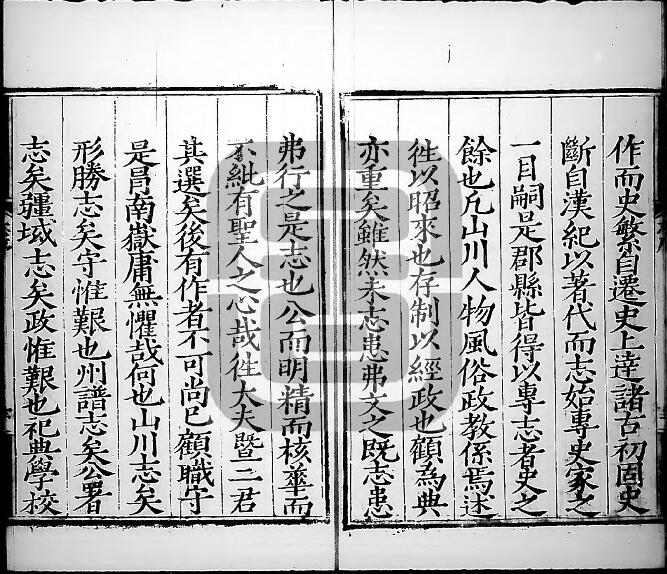 作而史繁自遷史上逹諸古初固史
斷自漢紀以著代而志始專史家之
一目嗣是郡縣皆得以專志者史之
餘也凡山川人物風俗政教係焉述
徃以昭來也存制以經政也顧為典
亦重矣雖然未志患弗文之既志患
弗行之是志也公而明精而核華而
不紕有聖人之心哉徃大夫暨二君
其選矣後有作者不可尚已顧職守
是冐南嶽庸無懼哉何也山川志矣
形勝志矣守惟艱也州譜志矣公署
志矣疆域志矣政惟艱也祀典學校